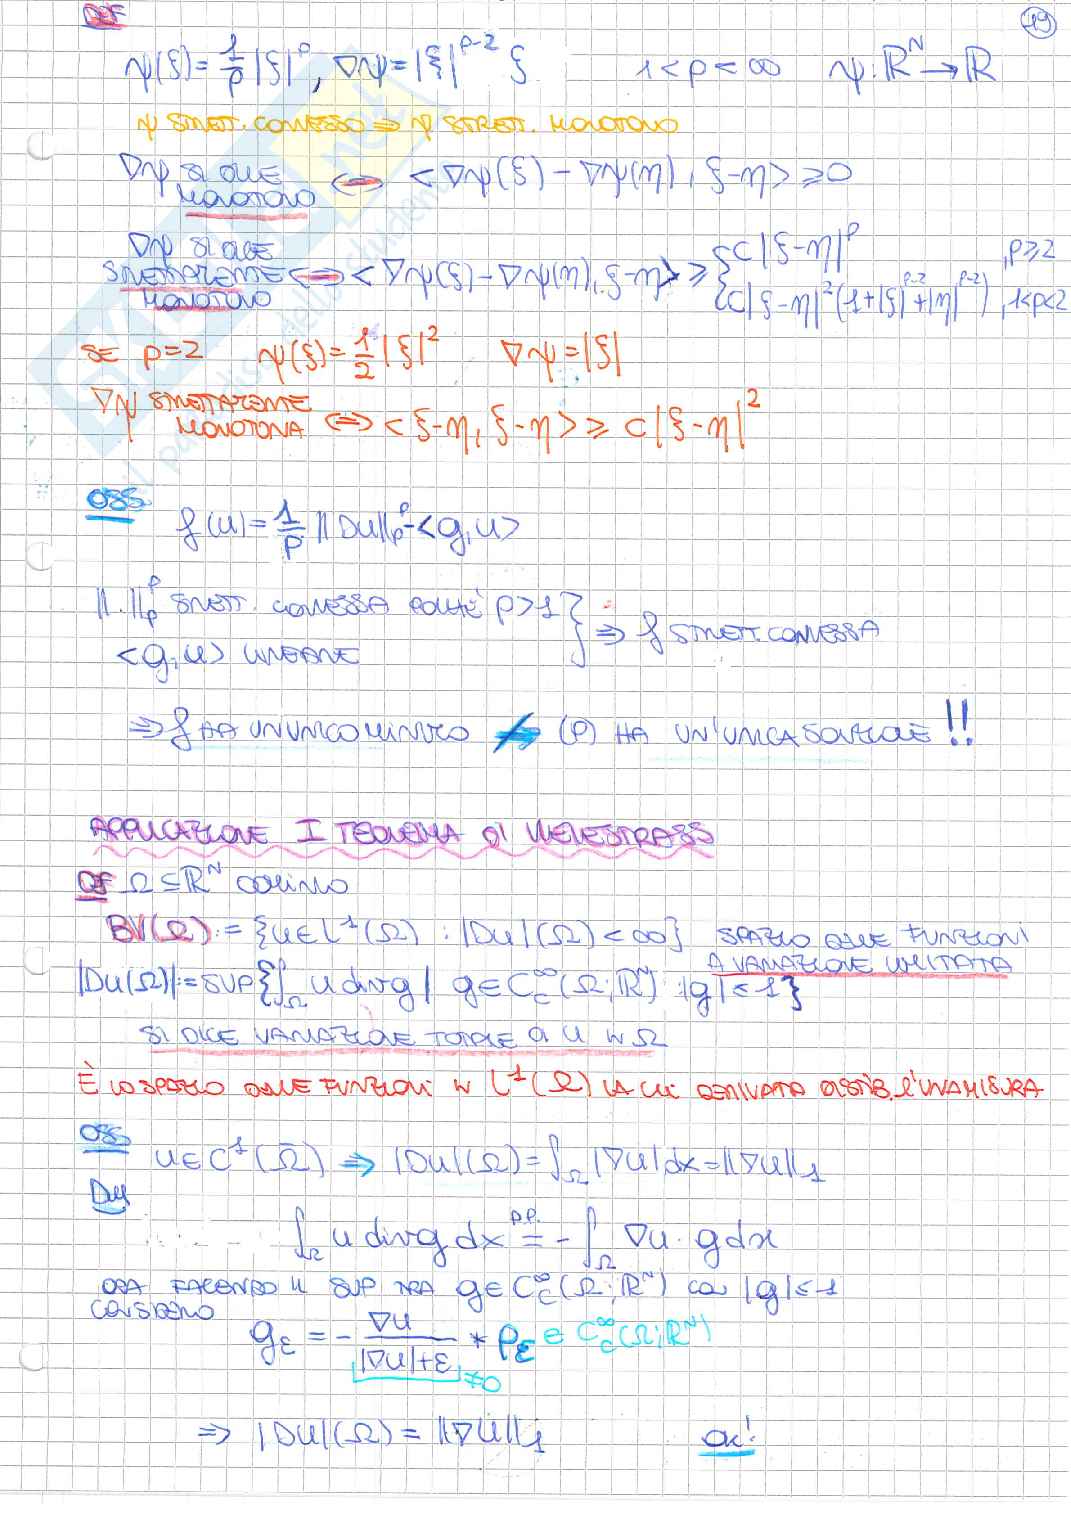 DEF
49
ψ(ξ) = 1/p |ξ|^p, ∇ψ = |ξ|^{p-2} ξ    1 < p < ∞    ψ: ℝ^N → ℝ
ψ STRETT. CONVESSO ⇒ ψ STRETT. MONOTONO
∇ψ SI DICE MONOTONO ⇔ <∇ψ(ξ) - ∇ψ(η), ξ-η> ≥ 0
∇ψ SI DICE STRETTAMENTE MONOTONO ⇔ <∇ψ(ξ) - ∇ψ(η), ξ-η> ≥ { C|ξ-η|^p , p≥2
C|ξ-η|^2 (1+|ξ|^{p-2}+|η|^{p-2}) , 1<p<2
SE p=2    ψ(ξ) = 1/2 |ξ|^2    ∇ψ = |ξ|
∇ψ STRETTAMENTE MONOTONA ⇔ <ξ-η, ξ-η> ≥ C|ξ-η|^2
OSS
f(u) = 1/p ||Du||_p^p - <g,u>
||.||_p^p STRETT. CONVESSA POICHÈ p>1 } ⇒ f STRETT. CONVESSA
<g,u> LINEARE
⇒ f HA UN UNICO MINIMO ⇒ (P) HA UN'UNICA SOLUZIONE !!
APPLICAZIONE I TEOREMA DI WEIESTRASS
DEF Ω ⊆ ℝ^N DOMINIO
BV(Ω) := {u ∈ L^1(Ω) : |Du|(Ω) < ∞} SPAZIO DELLE FUNZIONI
A VARIAZIONE LIMITATA
|Du(Ω)| := SUP{∫_Ω u div g | g ∈ C_c^∞(Ω; ℝ^N) : |g| ≤ 1}
SI DICE VARIAZIONE TOTALE DI u IN Ω
È LO SPAZIO DELLE FUNZIONI IN L^1(Ω) LA CUI DERIVATA DISTRIB. È UNA MISURA
OSS
u ∈ C^1(Ω̄) ⇒ |Du|(Ω) = ∫_Ω |∇u| dx = ||∇u||_1
DIM
∫_Ω u div g dx =^{P.P.} - ∫_Ω ∇u · g dx
ORA FACENDO IL SUP TRA g ∈ C_c^∞(Ω; ℝ^N) CON |g| ≤ 1
CONSIDERO
g_ε = - ∇u / (|∇u|+ε) * ρ_ε ∈ C_c^∞(Ω; ℝ^N)
≠0
⇒ |Du|(Ω) = ||∇u||_1    OK!